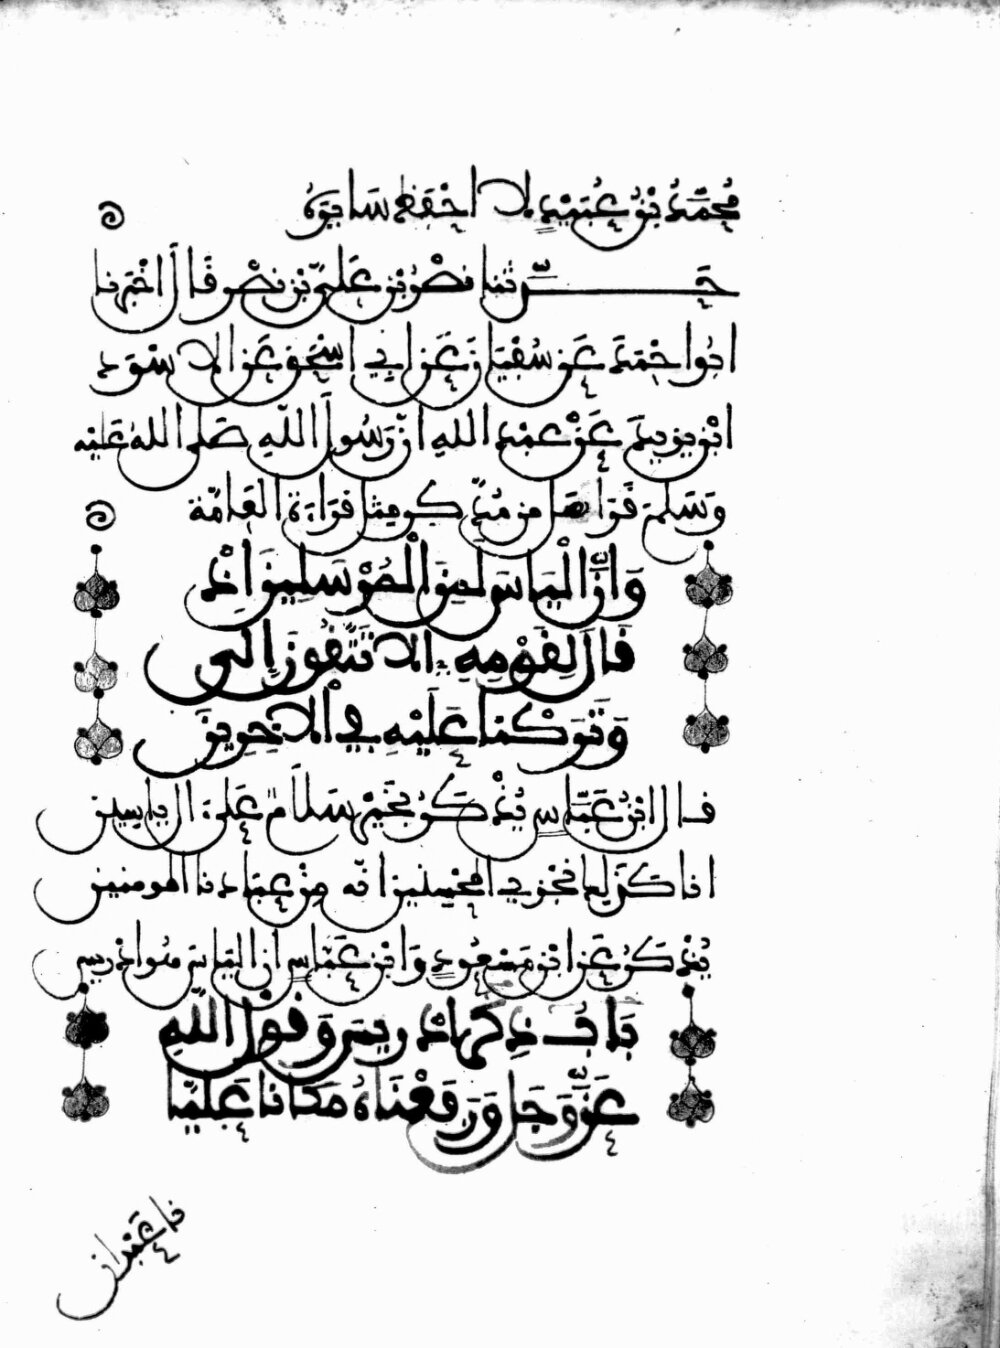 مُحَمَّدُ بْنُ عُبَيْدٍ لا احْفَظُ سَايِرَهُ
حَدَّثنا نصْرُ بْنُ عَلِىِّ بْنِ نصْرٍ قَالَ اخْبَرَنا
ابُو احْمَدَ عَن سُفْيَانَ عَن ابِي اسْحَقَ عَنِ الاسْوَدِ
ابْنِ يزِيدَ عَنْ عبْدِ اللهِ انَّ رَسُولَ اللهِ صَلى اللهُ عَلَيْه
وَسَلمَ قَرَا فهَل مِن مُدَّكِرٍ مِثلَ قرَاءَةِ العَامَّة
وَاِنَّ الْيَاسَ لَمِنَ الْمُرْسَلِينَ اِذْ
قَالَ لِقَوْمِهِ اَلا تَتَّقُونَ اِلَى
وَتَرَكْنا عَلَيْهِ فِي الْاخِرِينَ
قال ابْنُ عَبَّاسٍ يُذْكَرُ بخَيْرٍ سَلَامٌ عَلَى ال ياسِين
انا كَذَلِكَ نَجْزِي المحْسِنِين انّه مِنْ عِبَادِنا المومنين
يُذْكَرُ عَنِ ابْنِ مَسْعُودٍ وَابْنِ عَبَّاسٍ ان اليَاسَ هُوَ ادْرِيس
بَابُ ذِكْرِ اِدْرِيسَ وَقَوْلِ اللَّهِ
عَزَّ وَجَلَّ وَرَفَعْنَاهُ مَكَانًا عَلِيًّا